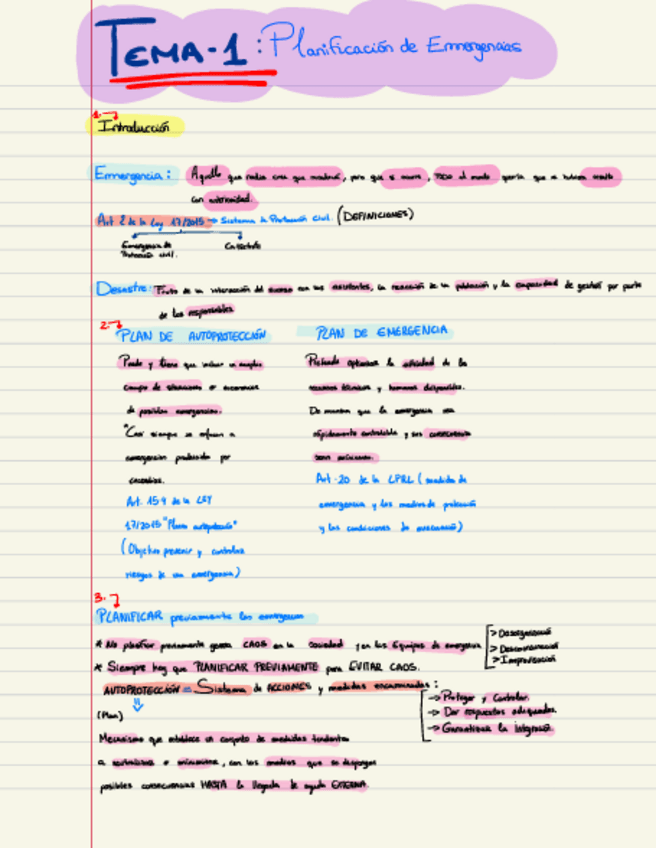 TEMA-1: Planificación de Emergencias
1.
Introducción
Emergencia: Aquello que nadie cree que sucederá, pero que si ocurre, TODO el mundo querría que se hubiera resuelto
con anterioridad.
Art 2 de la Ley 17/2015 → Sistema de Protección Civil. (DEFINICIONES)
Emergencia de Catástrofe
Protección civil.
Desastre: Fruto de la interacción del suceso con los asistentes, la reacción de la población y la capacidad de gestión por parte
de los responsables
2. PLAN DE AUTOPROTECCIÓN PLAN DE EMERGENCIA
y tiene que incluir un amplio
campo de situaciones o
de posibles emergencias.
"Casi siempre se enfocan a
emergencias producidas por
incendios.
Art. 159 de la LEY
17/2015 "Planes autoprotección"
(Objetivo prevenir y controlar
riesgos de una emergencia)
Pretende optimizar la eficacia de los
recursos técnicos y humanos disponibles.
De manera que la emergencia sea
rápidamente controlable y sus consecuencias
sean mínimas.
Art. 20 de la LPRL (medidas de
emergencia y los medios de protección
y las condiciones de evacuación)
3.
PLANIFICAR previamente las emergencias
* No planificar previamente genera CAOS en la sociedad y en los Equipos de emergencia
> Desorganización
> Descoordinación
> Improvisación
* Siempre hay que PLANIFICAR PREVIAMENTE para EVITAR CAOS.
AUTOPROTECCIÓN = Sistema de ACCIONES y medidas encaminadas:
→ Proteger y Controlar.
→ Dar respuestas adecuadas.
→ Garantizar la integración.
(Plan)
Mecanismo que establece un conjunto de medidas tendentes
a neutralizar o minimizar, con los medios que se dispongan
posibles consecuencias HASTA la llegada de ayuda EXTERNA.